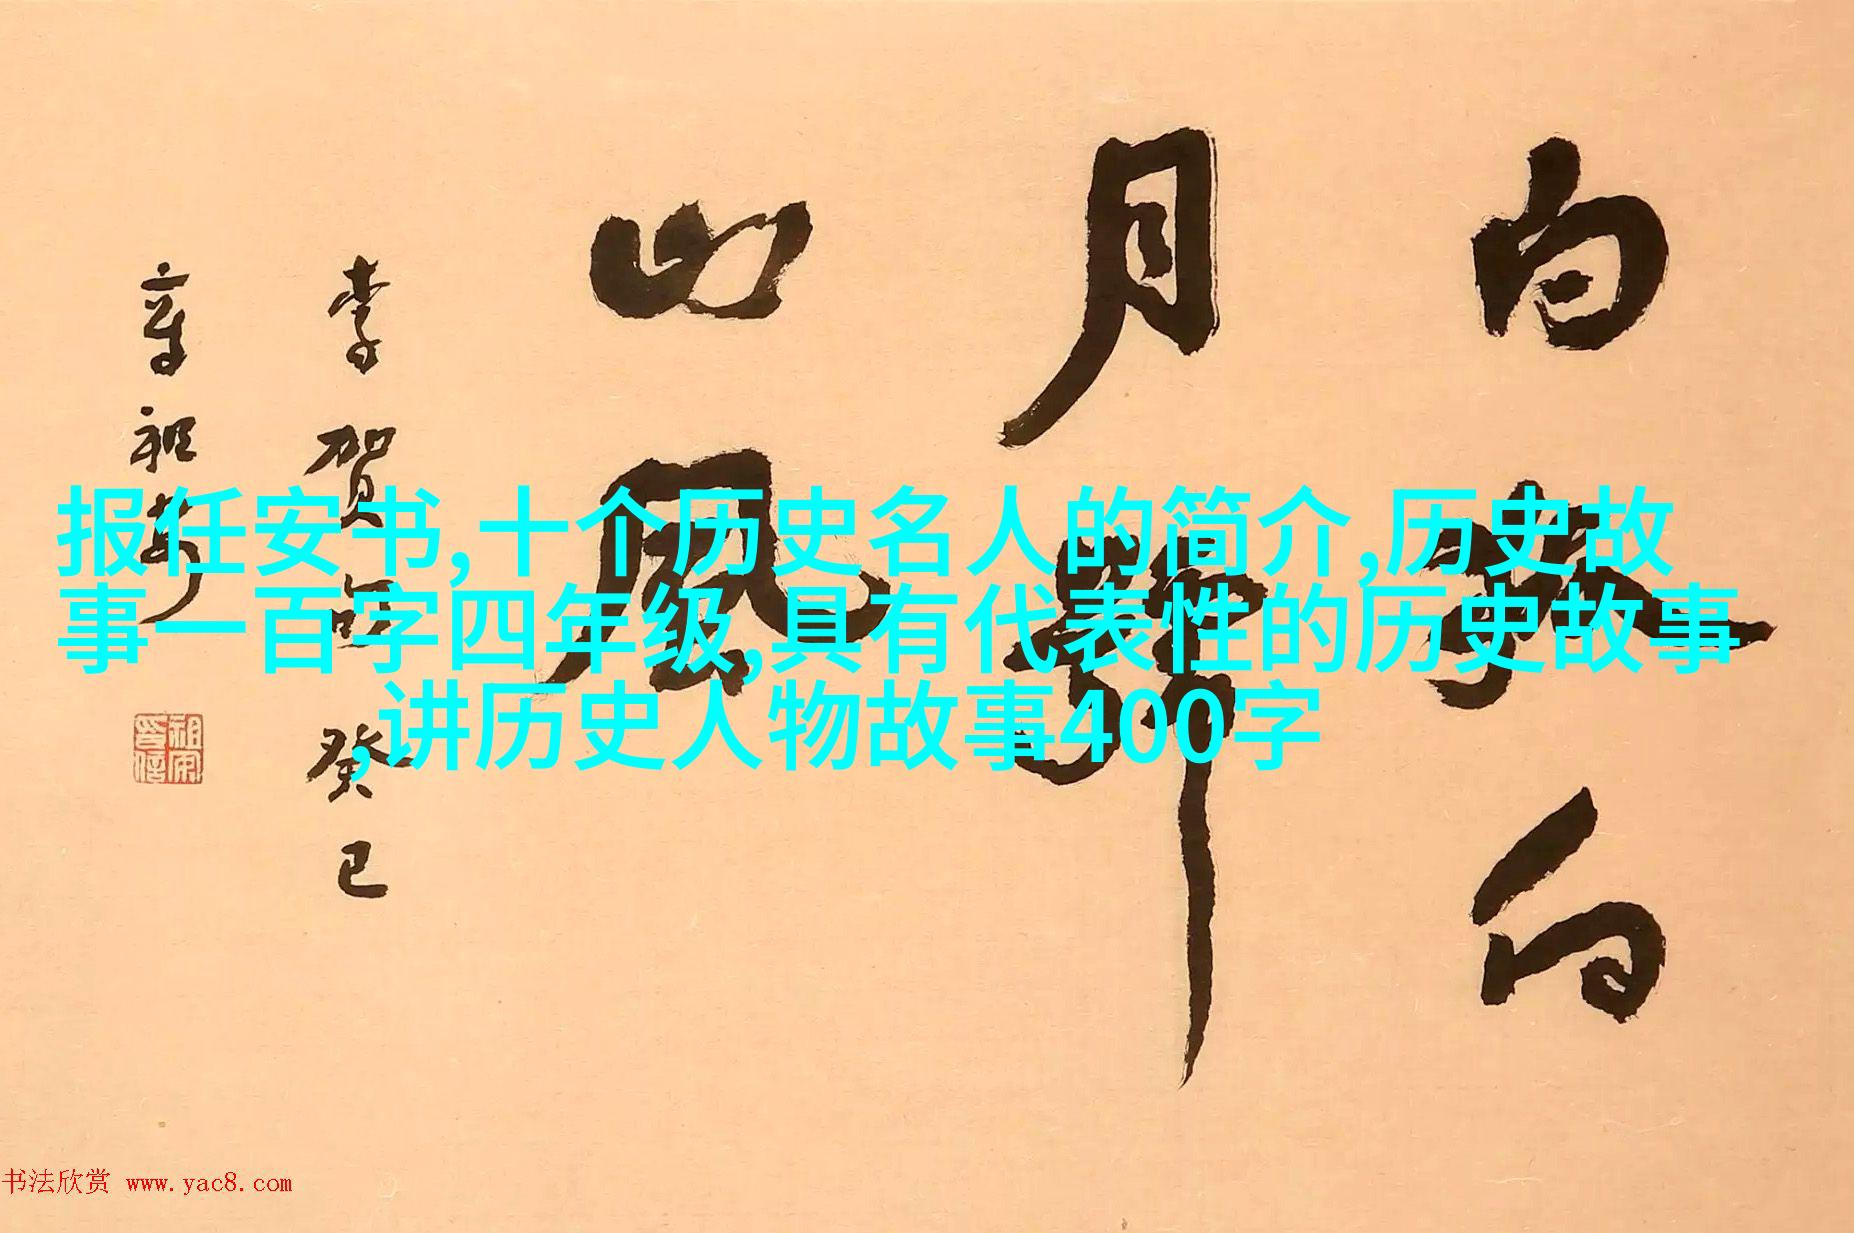 白狐向
月號
山風
李賀句 癸巳
章祖安
祖安印信
报任安书,十个历史名人的简介,历史故
事一百字四年级,具有代表性的历史故事
,讲历史人物故事400字
书法欣赏 www.yac8.com